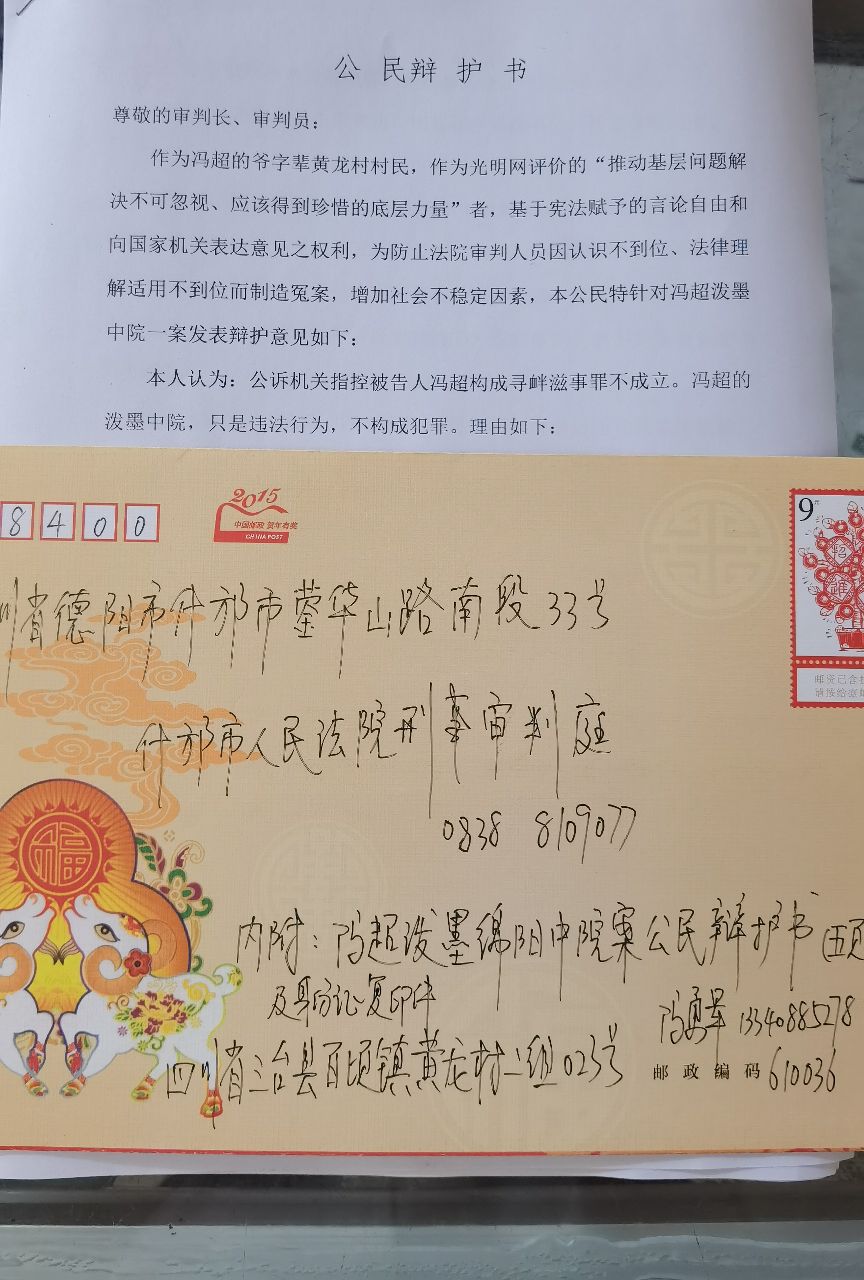 公 民 辩 护 书
尊敬的审判长、审判员：
作为冯超的爷字辈黄龙村村民，作为光明网评价的“推动基层问题解
决不可忽视、应该得到珍惜的底层力量”者，基于宪法赋予的言论自由和
向国家机关表达意见之权利，为防止法院审判人员因认识不到位、法律理
解适用不到位而制造冤案，增加社会不稳定因素，本公民特针对冯超泼墨
中院一案发表辩护意见如下：
本人认为：公诉机关指控被告人冯超构成寻衅滋事罪不成立。冯超的
泼墨中院，只是违法行为，不构成犯罪。理由如下：
8400
2015
中国邮政 贺年有奖
CHINA POST
9元
邮资已含
川省德阳市什邡市蓥华山路南段33号
什邡市人民法院刑事审判庭
0838 8109077
福
内附：冯超泼墨绵阳中院案公民辩护书（五页
及身份证复印件
冯勇军 13340885278
四川省三台县百顷镇黄龙村二组023号
邮 政 编 码 610036